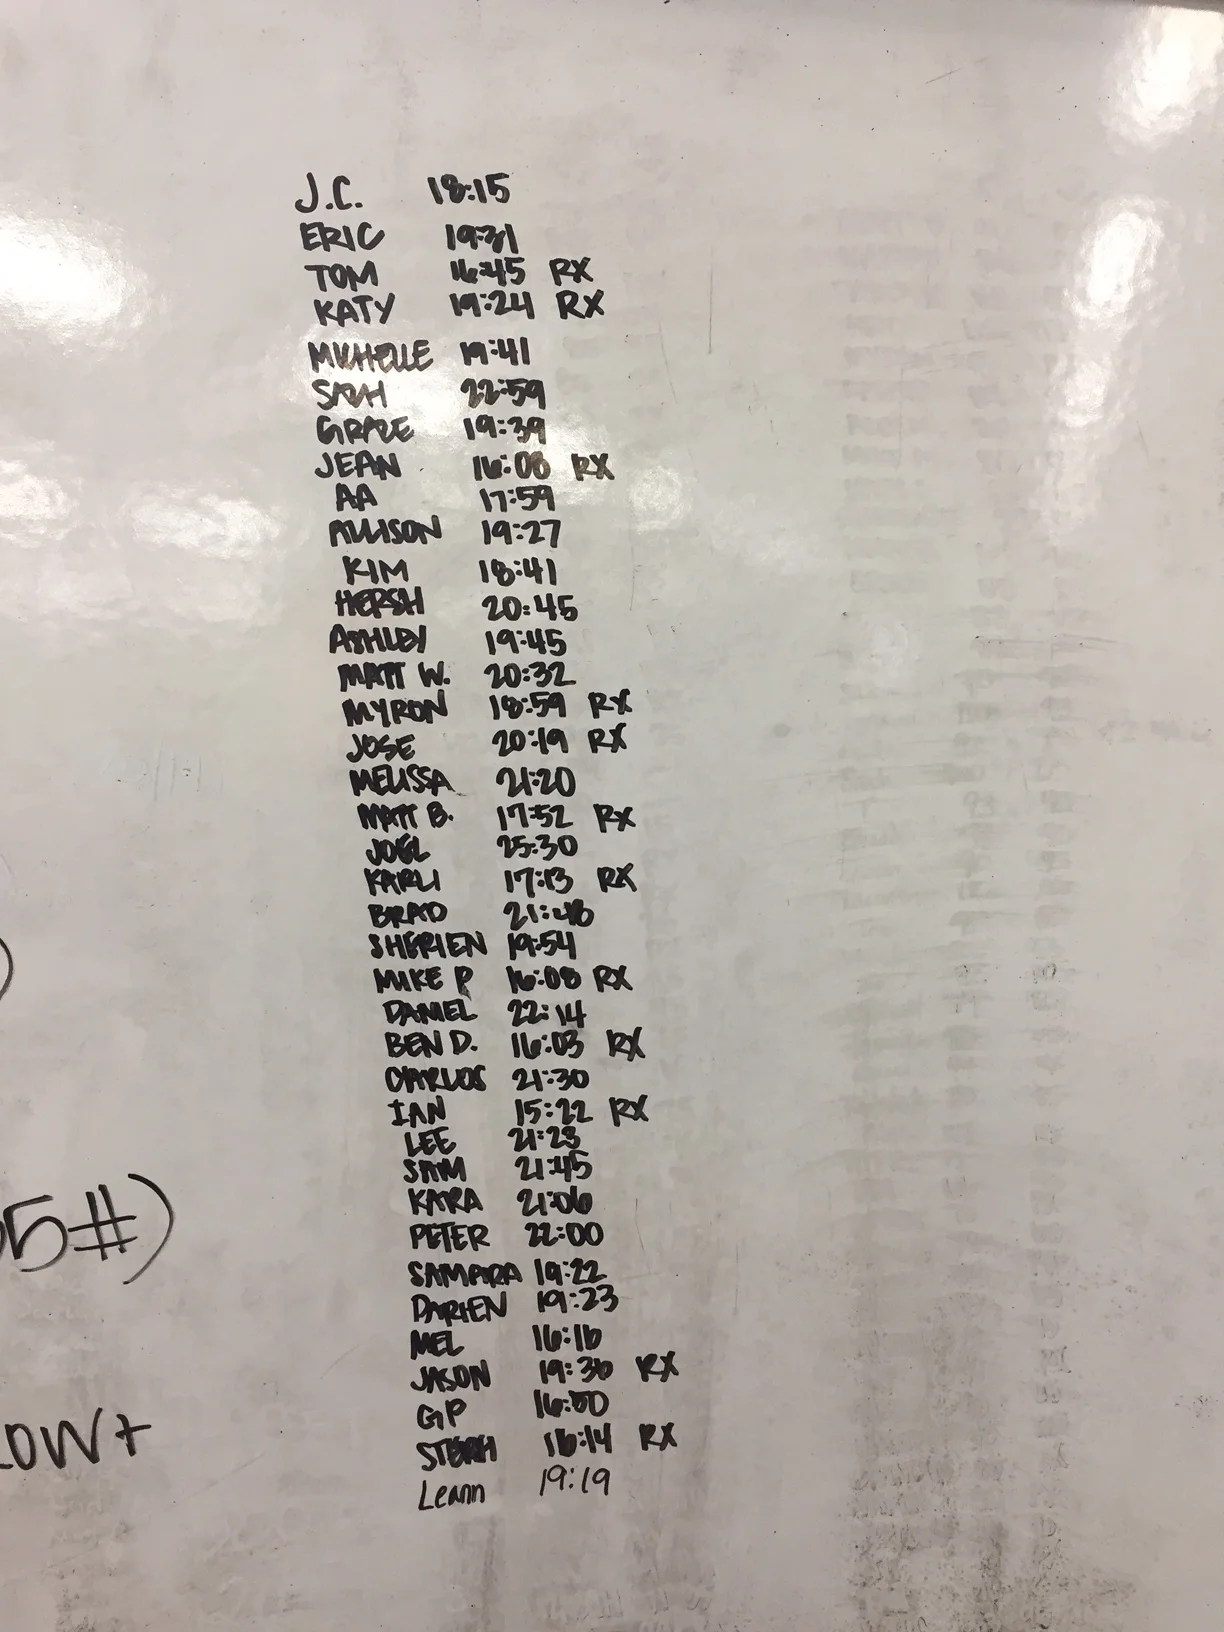 J.C. 18:15
ERIC 19:31
TOM 16:45 RX
KATY 19:24 RX
MICHELLE 19:41
SARAH 22:59
GRACE 19:39
JEAN 16:08 RX
AA 17:59
ALLISON 19:27
KIM 18:41
HERSH 20:45
ASHLEY 19:45
MATT W. 20:32
MYRON 18:59 RX
JOSE 20:19 RX
MELISSA 21:20
MATT B. 17:52 RX
JOEL 25:30
KARLI 17:13 RX
BRAD 21:48
SHERIEN 19:54
MIKE P 16:08 RX
DANIEL 22:14
BEN D. 16:03 RX
CARLOS 21:30
IAN 15:22 RX
LEE 21:23
SAM 21:45
KARA 21:06
5#)
PETER 22:00
SAMARA 19:22
DARIEN 19:23
MEL 16:16
JASON 19:36 RX
GP 16:50
OW+
STEPH 16:14 RX
Leann 19:19